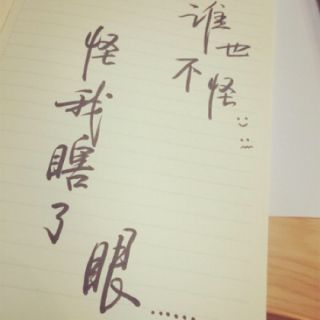 谁也不怪
怪我瞎了眼……